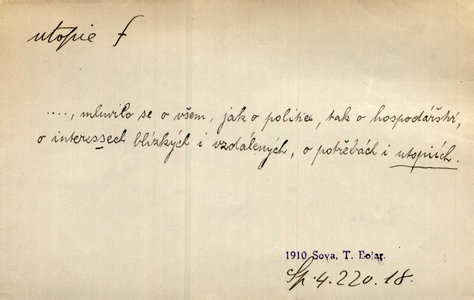 utopie f
...., mluvilo se o všem, jak o politice, tak o hospodářství,
o interessech blízkých i vzdálených, o potřebách i utopiích.
1910 Sova, T. Pojar.
Sp. 4. 220. 18.